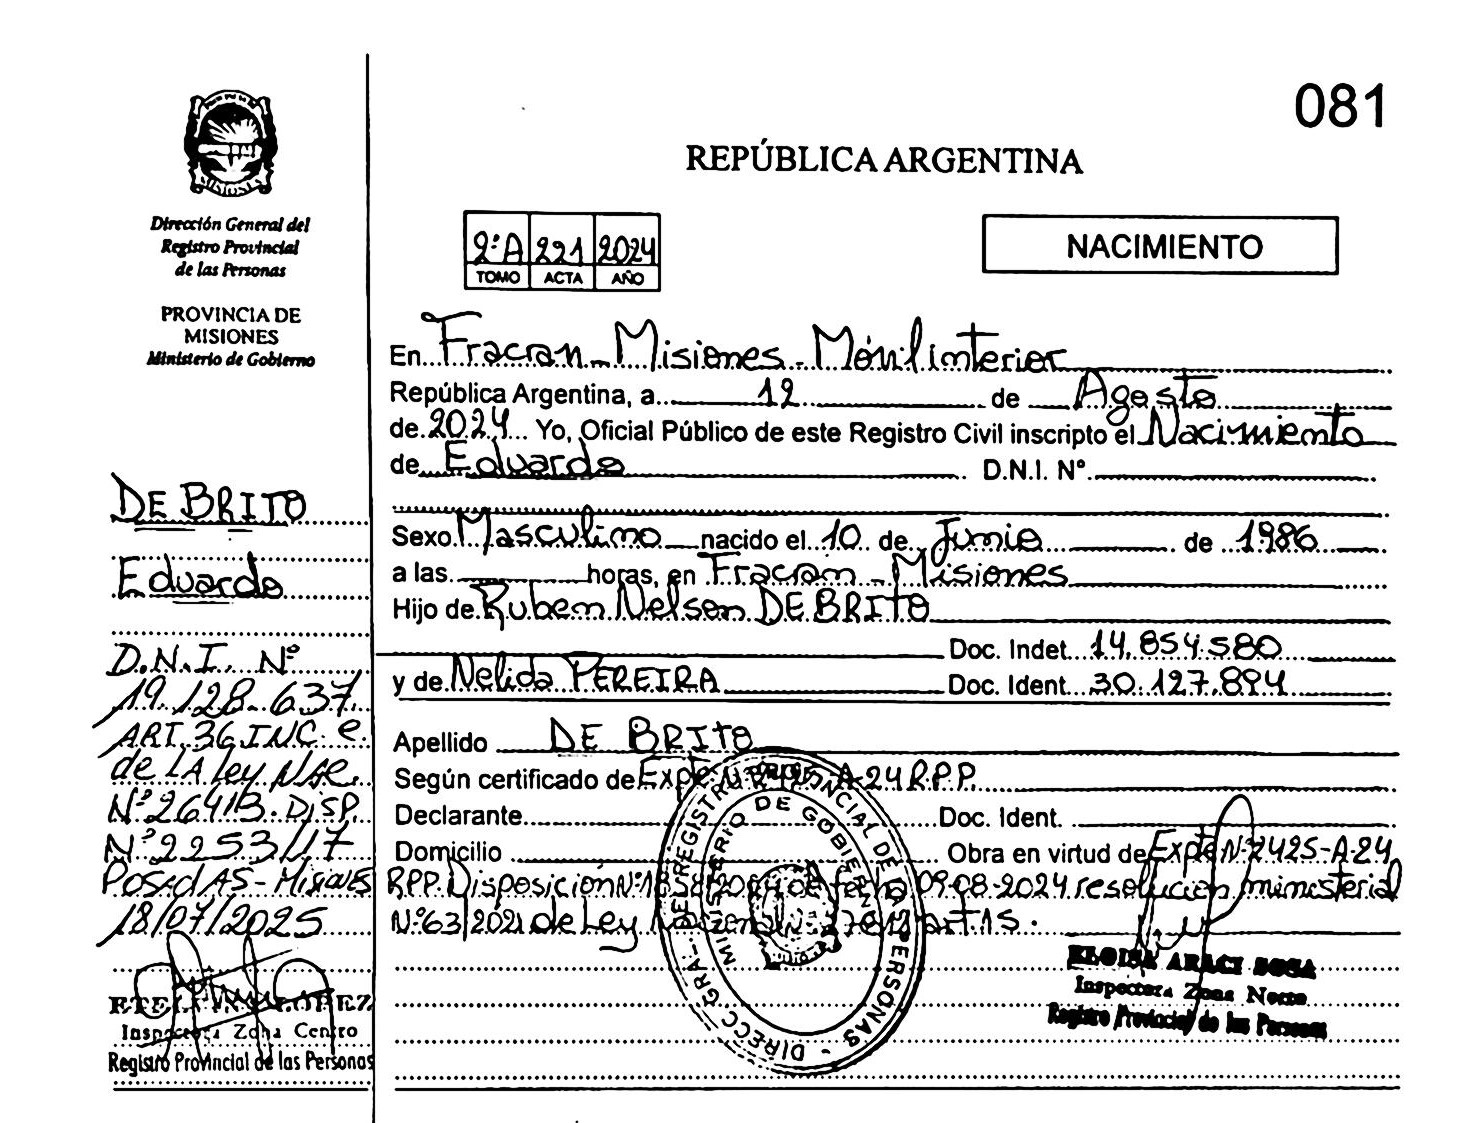 081
REPÚBLICA ARGENTINA
MISIONES
Dirección General del
Registro Provincial
de las Personas
PROVINCIA DE
MISIONES
Ministerio de Gobierno
2ºA 221 2024
TOMO ACTA AÑO
NACIMIENTO
En Fracran - Misiones - Móvil interior
República Argentina, a 12 de Agosto
de 2024 Yo, Oficial Público de este Registro Civil inscripto el Nacimiento
de Eduardo D.N.I. Nº
Sexo Masculino nacido el 10 de Junio de 1986
a las horas, en Fracran - Misiones
Hijo de Ruben Nelson DE BRITO
Doc. Indet. 14.854.580
y de Nelida PEREIRA Doc. Ident. 30.127.894
Apellido DE BRITO
Según certificado de Expte Nº2425-A-24 R.P.P.
Declarante Doc. Ident.
Domicilio Obra en virtud de Expte Nº2425-A-24
RPP. Disposición Nº 2024 de fecha 09-08-2024 resolución ministerial
Nº63/2021 de Ley Nacional art 15.
DE BRITO
Eduardo
D.N.I. Nº
19.128.637
ART. 36 INC. e
de LA ley
Nº 26413. DISP.
Nº 2253/17
Posadas - Misiones
18/07/2025
LOPEZ
Inspectora Zona Centro
Registro Provincial de las Personas
DIRECC. GRAL. DEL REGISTRO PROVINCIAL DE LAS PERSONAS
MINISTERIO DE GOBIERNO
ELOISA ARACI SOSA
Inspectora Zona Norte
Registro Provincial de las Personas